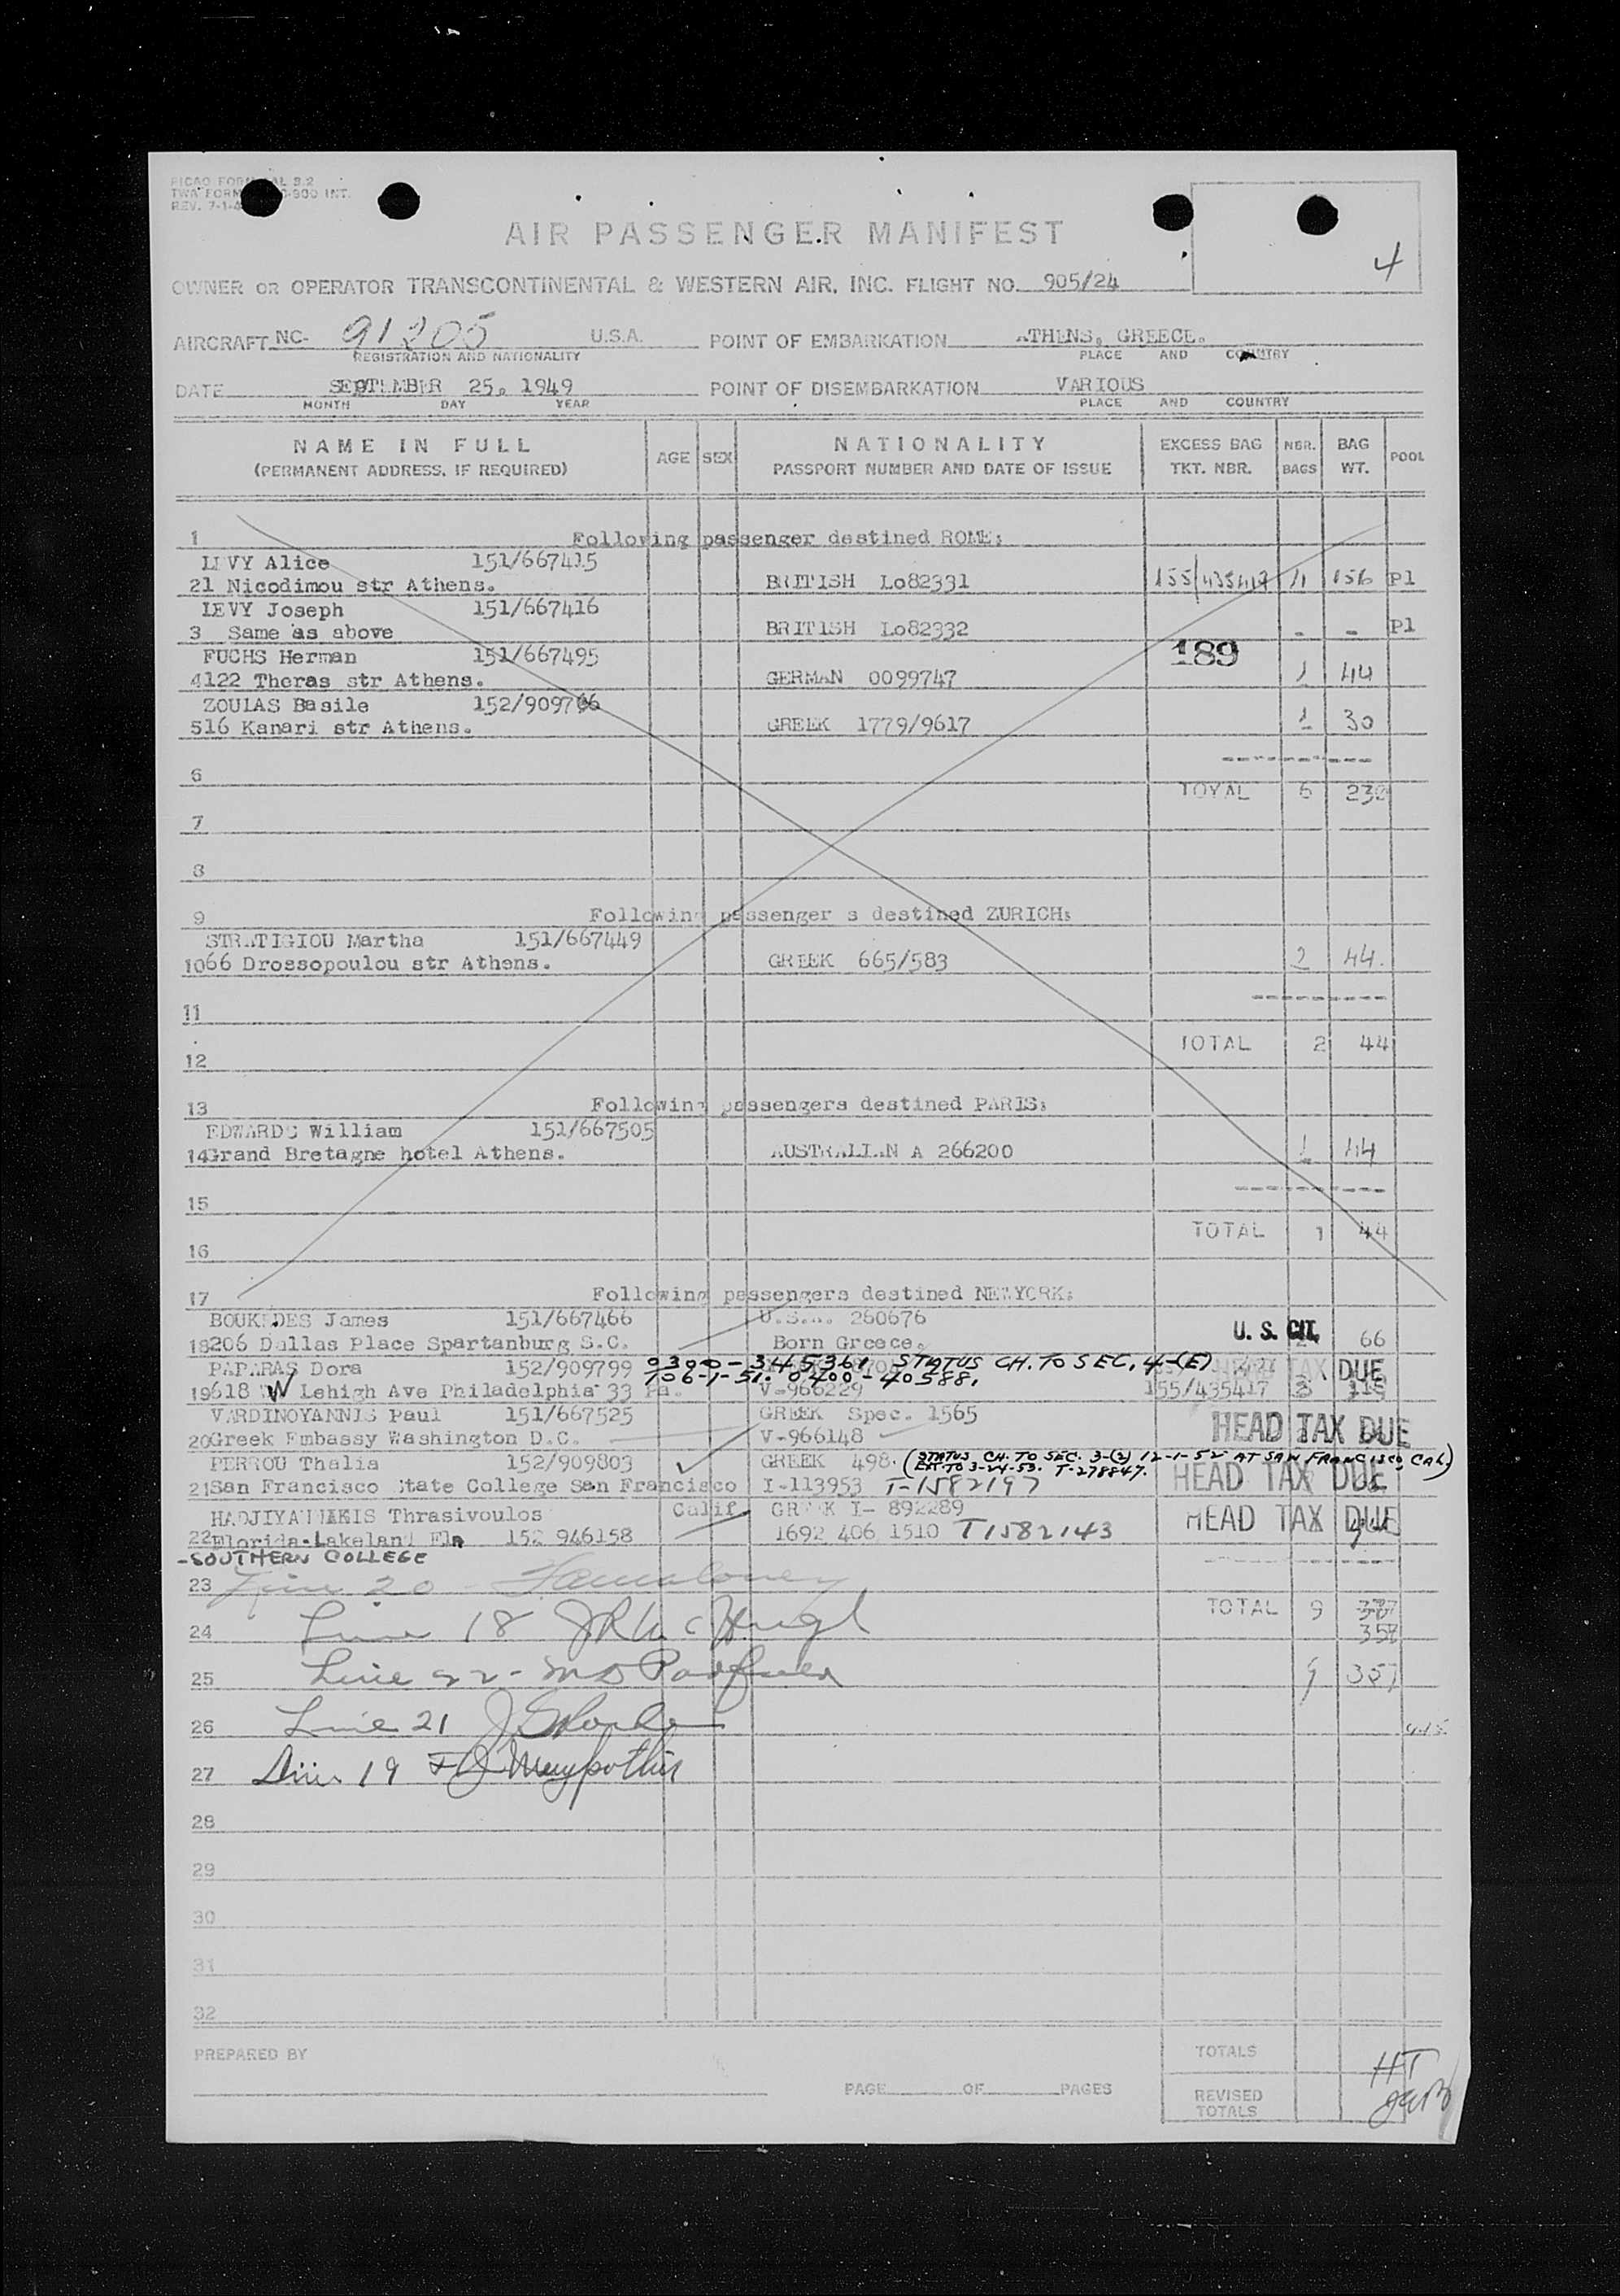 TWA FORM -900 INT.
REV. 7-1-4
4
AIR PASSENGER MANIFEST
OWNER OR OPERATOR TRANSCONTINENTAL & WESTERN AIR, INC. FLIGHT NO. 905/24
AIRCRAFT NC- 91205 U.S.A. POINT OF EMBARKATION ATHENS, GREECE.
REGISTRATION AND NATIONALITY PLACE AND COUNTRY
DATE SEPTEMBER 25, 1949 POINT OF DISEMBARKATION VARIOUS
MONTH DAY YEAR PLACE AND COUNTRY
NAME IN FULL AGE SEX NATIONALITY EXCESS BAG NBR. BAG POOL
(PERMANENT ADDRESS, IF REQUIRED) PASSPORT NUMBER AND DATE OF ISSUE TKT. NBR. BAGS WT.
1 Following passenger destined ROME:
LEVY Alice 151/667415
21 Nicodimou str Athens. BRITISH Lo82331 155/435419 156 P1
LEVY Joseph 151/667416
3 Same as above BRITISH Lo82332 - - P1
FUCHS Herman 151/667495 189
4122 Theras str Athens. GERMAN 0099747 1 44
ZOULAS Basile 152/909766
516 Kanari str Athens. GREEK 1779/9617 1 30
6
TOYAL 6 230
7
8
9 Following passenger s destined ZURICH:
STRATIGIOU Martha 151/667449
1066 Drossopoulou str Athens. GREEK 665/583 2 44.
11
TOTAL 2 44
12
13 Following passengers destined PARIS:
EDWARDS William 151/667505
14Grand Bretagne hotel Athens. AUSTRALIAN A 266200 1 44
15
TOTAL 1 44
16
17 Following passengers destined NEWYORK:
BOUKEDES James 151/667466 U.S.A. 260676
18206 Dallas Place Spartanburg S.C. Born Greece. U. S. CIT. 66
PAPARAS Dora 152/909799 0300-345361 STATUS CH. TO SEC. 4-(E) HEAD TAX DUE
706-1-51. 0400-40588.
19618 W Lehigh Ave Philadelphia 33 Pa. V-966229 155/435417 3 115
VARDINOYANNIS Paul 151/667525 GREEK Spec. 1565
20Greek Embassy Washington D.C. V-966148 HEAD TAX DUE
PERROU Thalia 152/909803 GREEK 498. (STATUS CH. TO SEC. 3-(2) 12-1-52 AT SAN FRANCISCO CAL)
EXT. TO 3-24-53. T-278847.
21San Francisco State College San Francisco I-113953 T-1582197 HEAD TAX DUE
HADJIYANNAKIS Thrasivoulos Calif. GREEK I- 892289
22Florida-Lakeland Fla 152 946158 1692 406 1510 T1582143 HEAD TAX DUE
-SOUTHERN COLLEGE
23 Line 20
TOTAL 9
24 Line 18
25 Line 22- 9 357
26 Line 21
27 Line 19
28
29
30
31
32
PREPARED BY TOTALS
PAGE OF PAGES
REVISED
TOTALS
HT